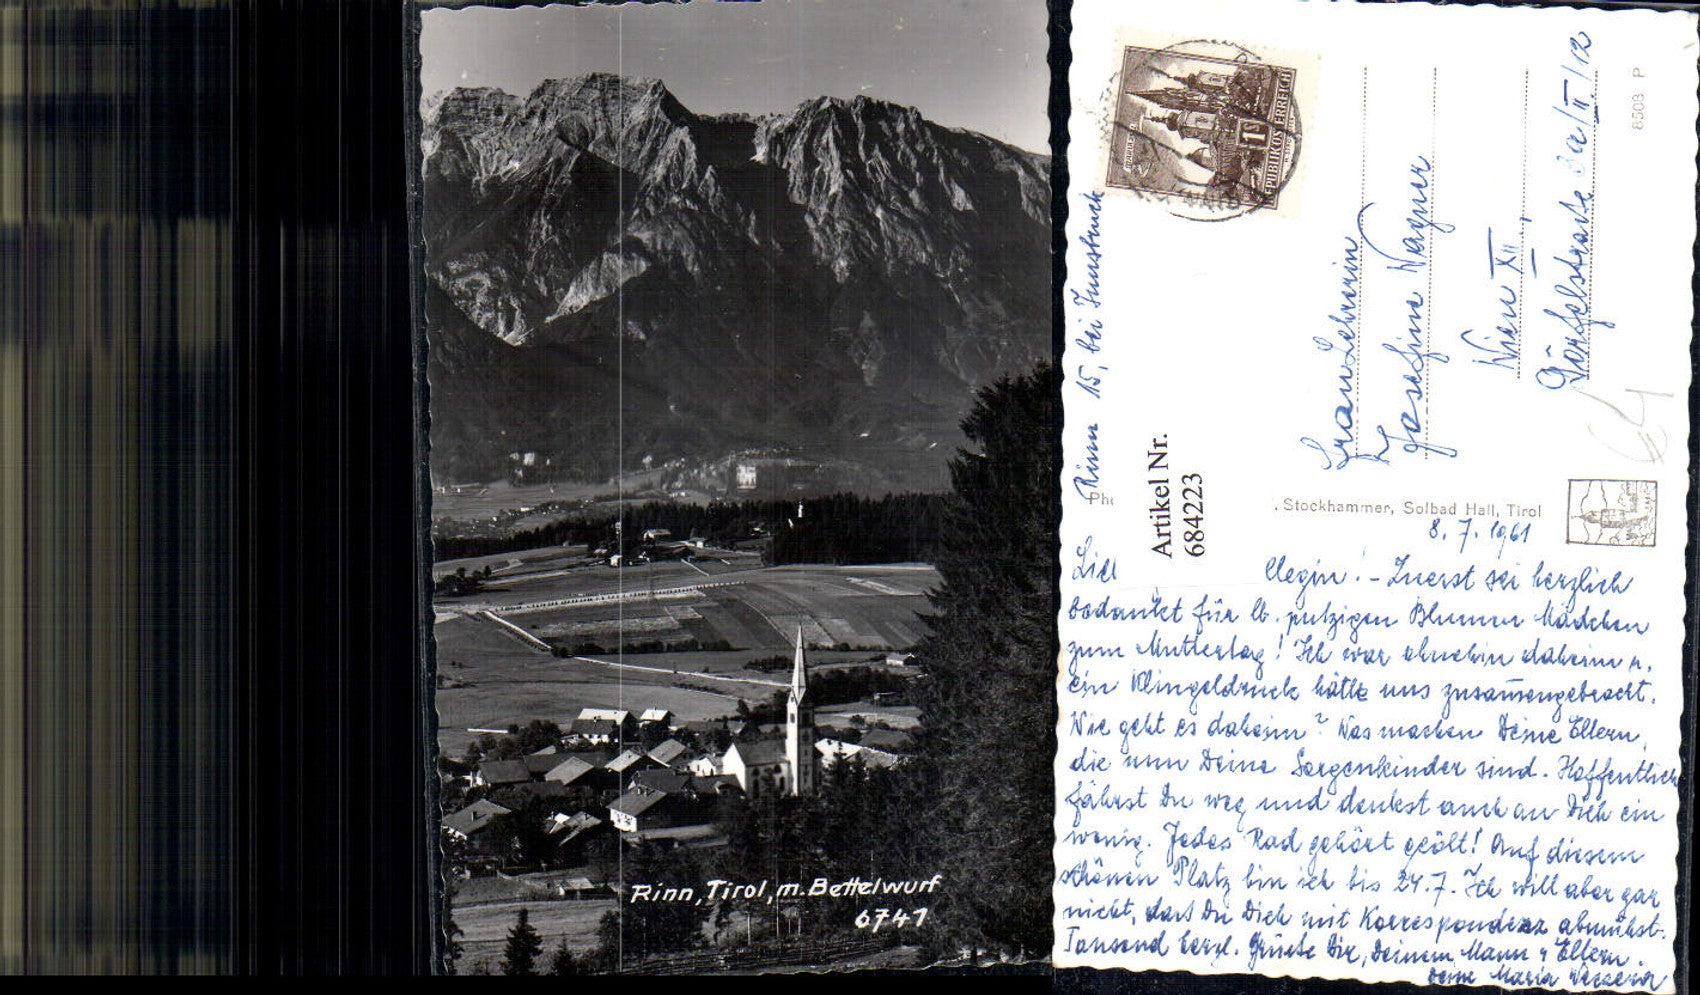 Rinn, Tirol, m. Bettelwurf
6741
REPUBLIK ÖSTERREICH
Frau Lehrerin
Josefine Wagner
Wien XII
8508 P
Rinn 15, bei Innsbruck
Artikel Nr.
684223
. Stockhammer, Solbad Hall, Tirol
8. 7. 1961
llegin! - Zuerst sei herzlich
bedankt für lb. putzigen Blumen Mädchen
zum Muttertag! Ich war ohnehin daheim u.
ein Klingeldruck hätte uns zusammengebracht.
Wie geht es daheim? Was machen Deine Eltern,
die nun Deine Sorgenkinder sind. Hoffentlich
fährst Du weg und denkst auch an Dich ein
wenig. Jedes Rad gehört geölt! Auf diesem
schönen Platz bin ich bis 24.7. Ich will aber gar
nicht, dass Du Dich mit Korrespondenz abmühst.
Tausend herzl. Grüsse Dir, Deinem Mann u Eltern.
Deine Maria